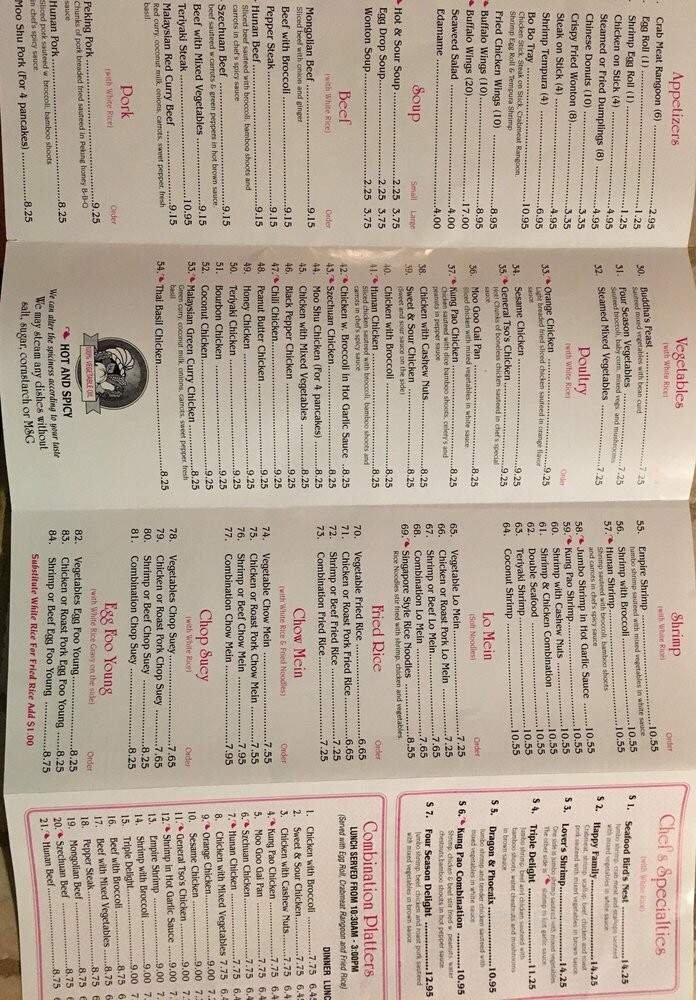 Appetizers
Crab Meat Rangoon (6) 2.95
Egg Roll (1) 1.25
Shrimp Egg Roll (1) 1.25
Chicken on Stick (4) 4.95
Steamed or Fried Dumplings (8) 4.95
Chinese Donuts (10) 3.35
Crispy Fried Wonton (8) 3.35
Steak on Stick (4) 4.95
Shrimp Tempura (4) 6.95
Bo Bo Tray 10.95
Chicken Stick, Steak on Stick, Crabmeat Rangoon,
Shrimp Egg Roll & Tempura Shrimp
Fried Chicken Wings (10) 8.95
Buffalo Wings (10) 8.95
Buffalo Wings (20) 17.00
Seaweed Salad 4.00
Edamame 4.00
Soup
Small Large
Hot & Sour Soup 2.25 3.75
Egg Drop Soup 2.25 3.75
Wonton Soup 2.25 3.75
Beef
(with White Rice) Order
Mongolian Beef 9.15
Sliced beef with onion and ginger
Beef with Broccoli 9.15
Pepper Steak 9.15
Hunan Beef 9.15
Sliced beef sauteed with broccoli, bamboo shoots and
carrots in chef's spicy sauce
Szechuan Beef 9.15
Beef sauteed w. carrots & green peppers in hot brown sauce
Beef with Mixed Vegetables 9.15
Teriyaki Steak 10.95
Malaysian Red Curry Beef 9.15
Red curry, coconut milk, onions, carrots, sweet pepper, fresh
basil
Pork
(with White Rice) Order
Peking Pork 9.25
Chunks of pork breaded fried sauteed in Peking honey B-B-Q
sauce
Hunan Pork 8.25
Sliced pork sauteed w. broccoli, bamboo shoots
in chef's spicy sauce
Moo Shu Pork (For 4 pancakes) 8.25
Vegetables
(with White Rice)
30. Buddha's Feast 7.25
Sauteed mixed vegetables with bean curd
31. Four Season Vegetables 7.25
Sauteed broccoli, baby corn, mixed vegs. and mushrooms
32. Steamed Mixed Vegetables 7.25
Poultry
(with White Rice) Order
33. Orange Chicken 9.25
Light breaded fried sliced chicken sauteed in orange flavor
sauce
34. Sesame Chicken 9.25
35. General Tso's Chicken 9.25
(Hot) Chunks of boneless chicken sauteed in chef's special
sauce
36. Moo Goo Gai Pan 8.25
Sliced chicken with mixed vegetables in white sauce
37. Kung Pao Chicken 8.25
Chicken sauteed with dice bamboo shoots, celery's and
peanuts in pepper sauce
38. Chicken with Cashew Nuts 8.25
39. Sweet & Sour Chicken 8.25
(Sweet and sour sauce on the side)
40. Chicken with Broccoli 8.25
41. Hunan Chicken 8.25
Sliced chicken sauteed with broccoli, bamboo shoots and
carrots in chef's spicy sauce
42. Chicken w. Broccoli in Hot Garlic Sauce 8.25
43. Szechuan Chicken 8.25
44. Moo Shu Chicken (For 4 pancakes) 8.25
45. Chicken with Mixed Vegetables 8.25
46. Black Pepper Chicken 9.25
47. Chili Chicken 9.25
48. Peanut Butter Chicken 9.25
49. Honey Chicken 9.25
50. Teriyaki Chicken 9.25
51. Bourbon Chicken 9.25
52. Coconut Chicken 9.25
53. Malaysian Green Curry Chicken 9.25
Green curry, coconut milk, onions, carrots, sweet pepper, fresh
basil
54. Thai Basil Chicken 8.25
100% VEGETABLE OIL
HOT AND SPICY
We can alter the spiciness according to your taste
We may steam any dishes without
salt, sugar, cornstarch or MSG
Shrimp
(with White Rice) Order
55. Empire Shrimp 10.55
Jumbo shrimp sauteed with mixed vegetables in white sauce
56. Shrimp with Broccoli 10.55
57. Hunan Shrimp 10.55
Shrimp sauteed with broccoli, bamboo shoots
and carrots in chef's spicy sauce
58. Jumbo Shrimp in Hot Garlic Sauce 10.55
59. Kung Pao Shrimp 10.55
60. Shrimp with Cashew Nuts 10.55
61. Shrimp & Chicken Combination 10.55
62. Double Seafood 10.55
63. Teriyaki Shrimp 10.55
64. Coconut Shrimp 10.55
Lo Mein
(Soft Noodles) Order
65. Vegetable Lo Mein 7.25
66. Chicken or Roast Pork Lo Mein 7.25
67. Shrimp or Beef Lo Mein 7.65
68. Combination Lo Mein 7.65
69. Singapore Style Rice Noodles 8.55
Rice Noodles stir fried with shrimp, chicken and vegetables
Fried Rice
Order
70. Vegetable Fried Rice 6.65
71. Chicken or Roast Pork Fried Rice 6.65
72. Shrimp or Beef Fried Rice 7.25
73. Combination Fried Rice 7.25
Chow Mein
(with White Rice & Fried Noodles) Order
74. Vegetable Chow Mein 7.55
75. Chicken or Roast Pork Chow Mein 7.55
76. Shrimp or Beef Chow Mein 7.95
77. Combination Chow Mein 7.95
Chop Suey
(with White Rice) Order
78. Vegetables Chop Suey 7.65
79. Chicken or Roast Pork Chop Suey 7.65
80. Shrimp or Beef Chop Suey 8.25
81. Combination Chop Suey 8.25
Egg Foo Young
(with White Rice Gravy on the side) Order
82. Vegetables Egg Foo Young 8.25
83. Chicken or Roast Pork Egg Foo Young 8.25
84. Shrimp or Beef Egg Foo Young 8.75
Substitute White Rice For Fried Rice Add $1.00
Chef's Specialties
(with White Rice)
S 1. Seafood Bird's Nest 14.25
S 2. Happy Family 14.25
S 3. Lover's Shrimp 14.25
S 4. Triple Delight 11.25
Jumbo shrimp, beef and chicken sauteed with
bamboo shoots, water chestnuts and mushrooms
in brown sauce
S 5. Dragon & Phoenix 10.95
Jumbo shrimp and tender chicken sauteed with
mixed vegetables in white sauce
S 6. Kung Pao Combination 10.95
Shrimp, chicken & beef stir fried w. peanuts, water
chestnuts, bamboo shoots in hot pepper sauce
S 7. Four Season Delight 12.95
Jumbo shrimp, beef, chicken and roast pork sauteed
with mixed vegetables in brown sauce
Combination Platters
LUNCH SERVED FROM 10:30AM - 3:00PM
(Served with Egg Roll, Crabmeat Rangoon and Fried Rice)
DINNER LUNC
1. Chicken with Broccoli 7.75
2. Sweet & Sour Chicken 7.75
3. Chicken with Cashew Nuts 7.75
4. Kung Pao Chicken 7.75
5. Moo Goo Gai Pan 7.75
6. Szechuan Chicken 7.75
7. Hunan Chicken 7.75
8. Chicken with Mixed Vegetables 7.75
9. Orange Chicken 9.00
10. Sesame Chicken 9.00
11. General Tso's Chicken 9.00
12. Shrimp in Hot Garlic Sauce 9.00
13. Empire Shrimp 9.00
14. Shrimp with Broccoli 9.00
15. Triple Delight 9.00
16. Beef with Broccoli 8.75
17. Beef with Mixed Vegetables 8.75
18. Pepper Steak 8.75
19. Mongolian Beef 8.75
20. Szechuan Beef 8.75
21. Hunan Beef 8.75